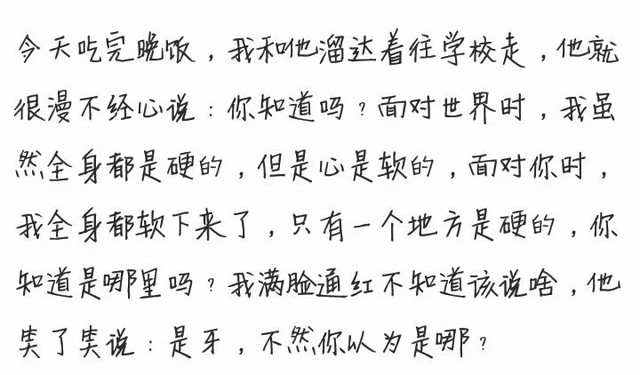 今天吃完晚饭，我和他溜达着往学校走，他就
很漫不经心说：你知道吗？面对世界时，我虽
然全身都是硬的，但是心是软的，面对你时，
我全身都软下来了，只有一个地方是硬的，你
知道是哪里吗？我满脸通红不知道该说啥，他
笑了笑说：是牙，不然你以为是哪？